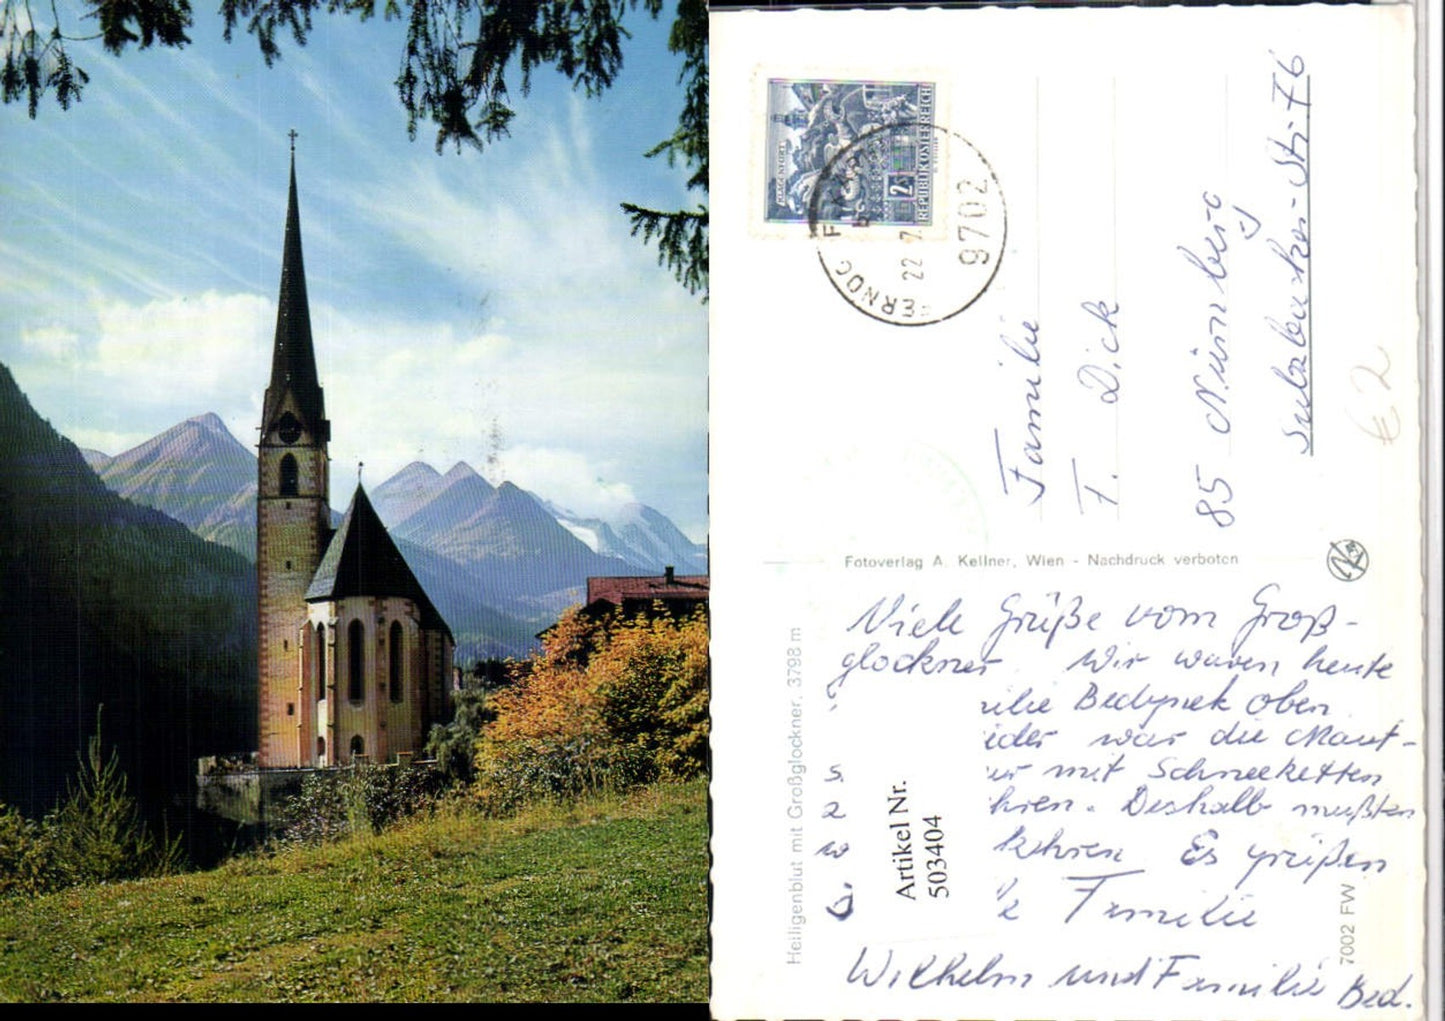 KLAGENFURT
2 S
REPUBLIK ÖSTERREICH
FERNDORF
22. 7.
9702
Familie
F. Dick
85 Nürnberg
Sulzbacher-Str. 76
€ 2
Fotoverlag A. Kellner, Wien - Nachdruck verboten
Heiligenblut mit Großglockner, 3798 m
7002 FW
Viele Grüße vom Groß-
glockner. Wir waren heute
ilie Bednjrek oben
eider war die Maut-
ur mit Schneeketten
hren. Deshalb mußten
w kehren Es grüßen
Familie
Wilhelm und Familie Bed.
Artikel Nr.
503404